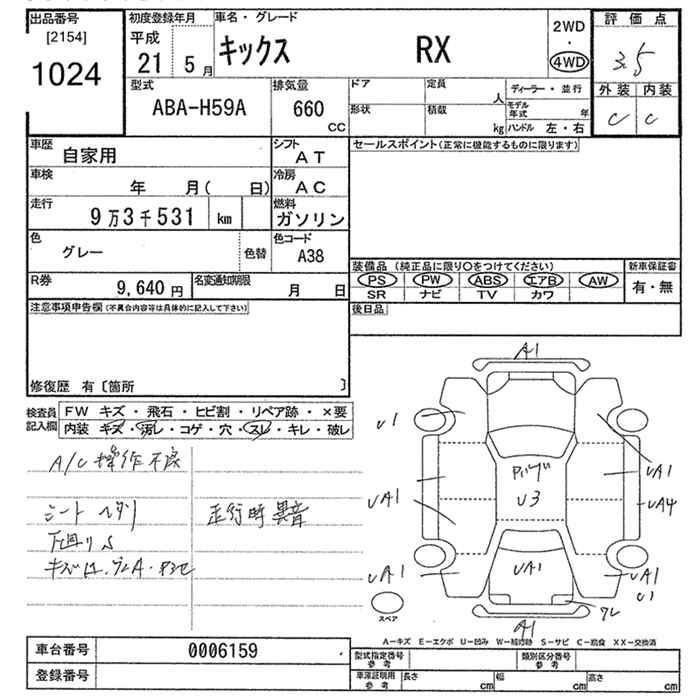 出品番号 初度登録年月 車名・グレード 2WD・4WD 評価点
[2154] 1024 平成21 5月 キックス RX 3.5
型式 ABA-H59A 排気量 660 CC
ドア 定員 人 ディーラー・並行 外装 内装
形状 積載 kg モデル年式 年 ハンドル 左・右 C C
車歴 自家用 シフト AT セールスポイント(正常に機能するものに限ります)
車検 年 月( 日) 冷房 AC
走行 9万3千531 km 燃料 ガソリン
色 グレー 色替 色コード A38
装備品 (純正品に限り○をつけてください) 新車保証書
R券 9,640円 名変通知期限 月 日 PS PW ABS エアB AW 有・無
SR ナビ TV カワ
注意事項申告欄(不具合内容等は具体的に記入して下さい) 後日品
修復歴 有〔箇所 〕
検査員記入欄 FW キズ・飛石・ヒビ割・リペア跡・×要
内装 キズ・汚レ・コゲ・穴・スレ・キレ・破レ
A1
U1
UA1
UA1
UA4
U3
A/C 操作不良
シートヘタリ 走行時異音
下廻りS
UA1
UA1
UA1
U1
スペア
A1
A-キズ E-エクボ U-凹み W-補修跡 S-サビ C-腐食 XX-交換済
車台番号 0006159 型式指定番号 参考 類別区分番号 参考
登録番号 車庫証明用 参考 長さ cm 幅 cm 高さ cm